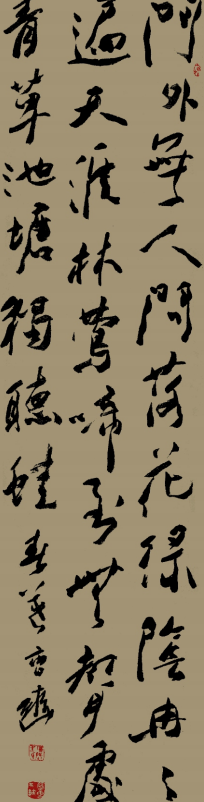 門外無人問落花綠陰冉〻
遍天涯林鶯啼到無聲處
青草池塘獨聽蛙 春暮 曹